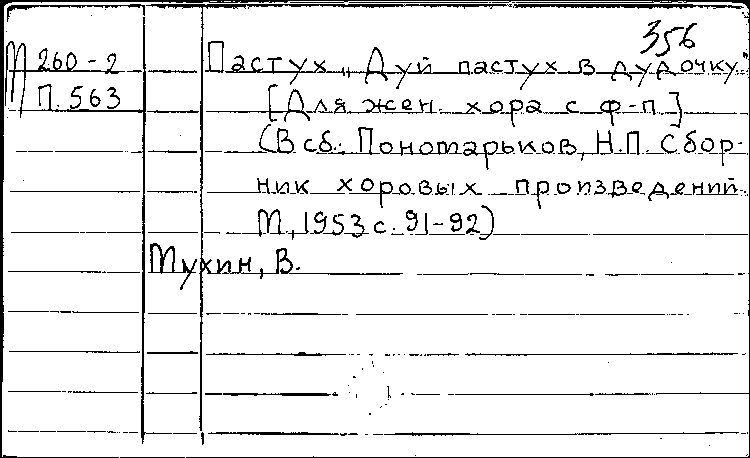 356
М 260-2 Пастух „Дуй пастух в дудочку"
П. 563 [Для жен. хора с ф-п]
(В сб.: Пономарьков, Н.П. Сбор-
ник хоровых произведений.
М., 1953 с. 91-92)
Мухин, В.